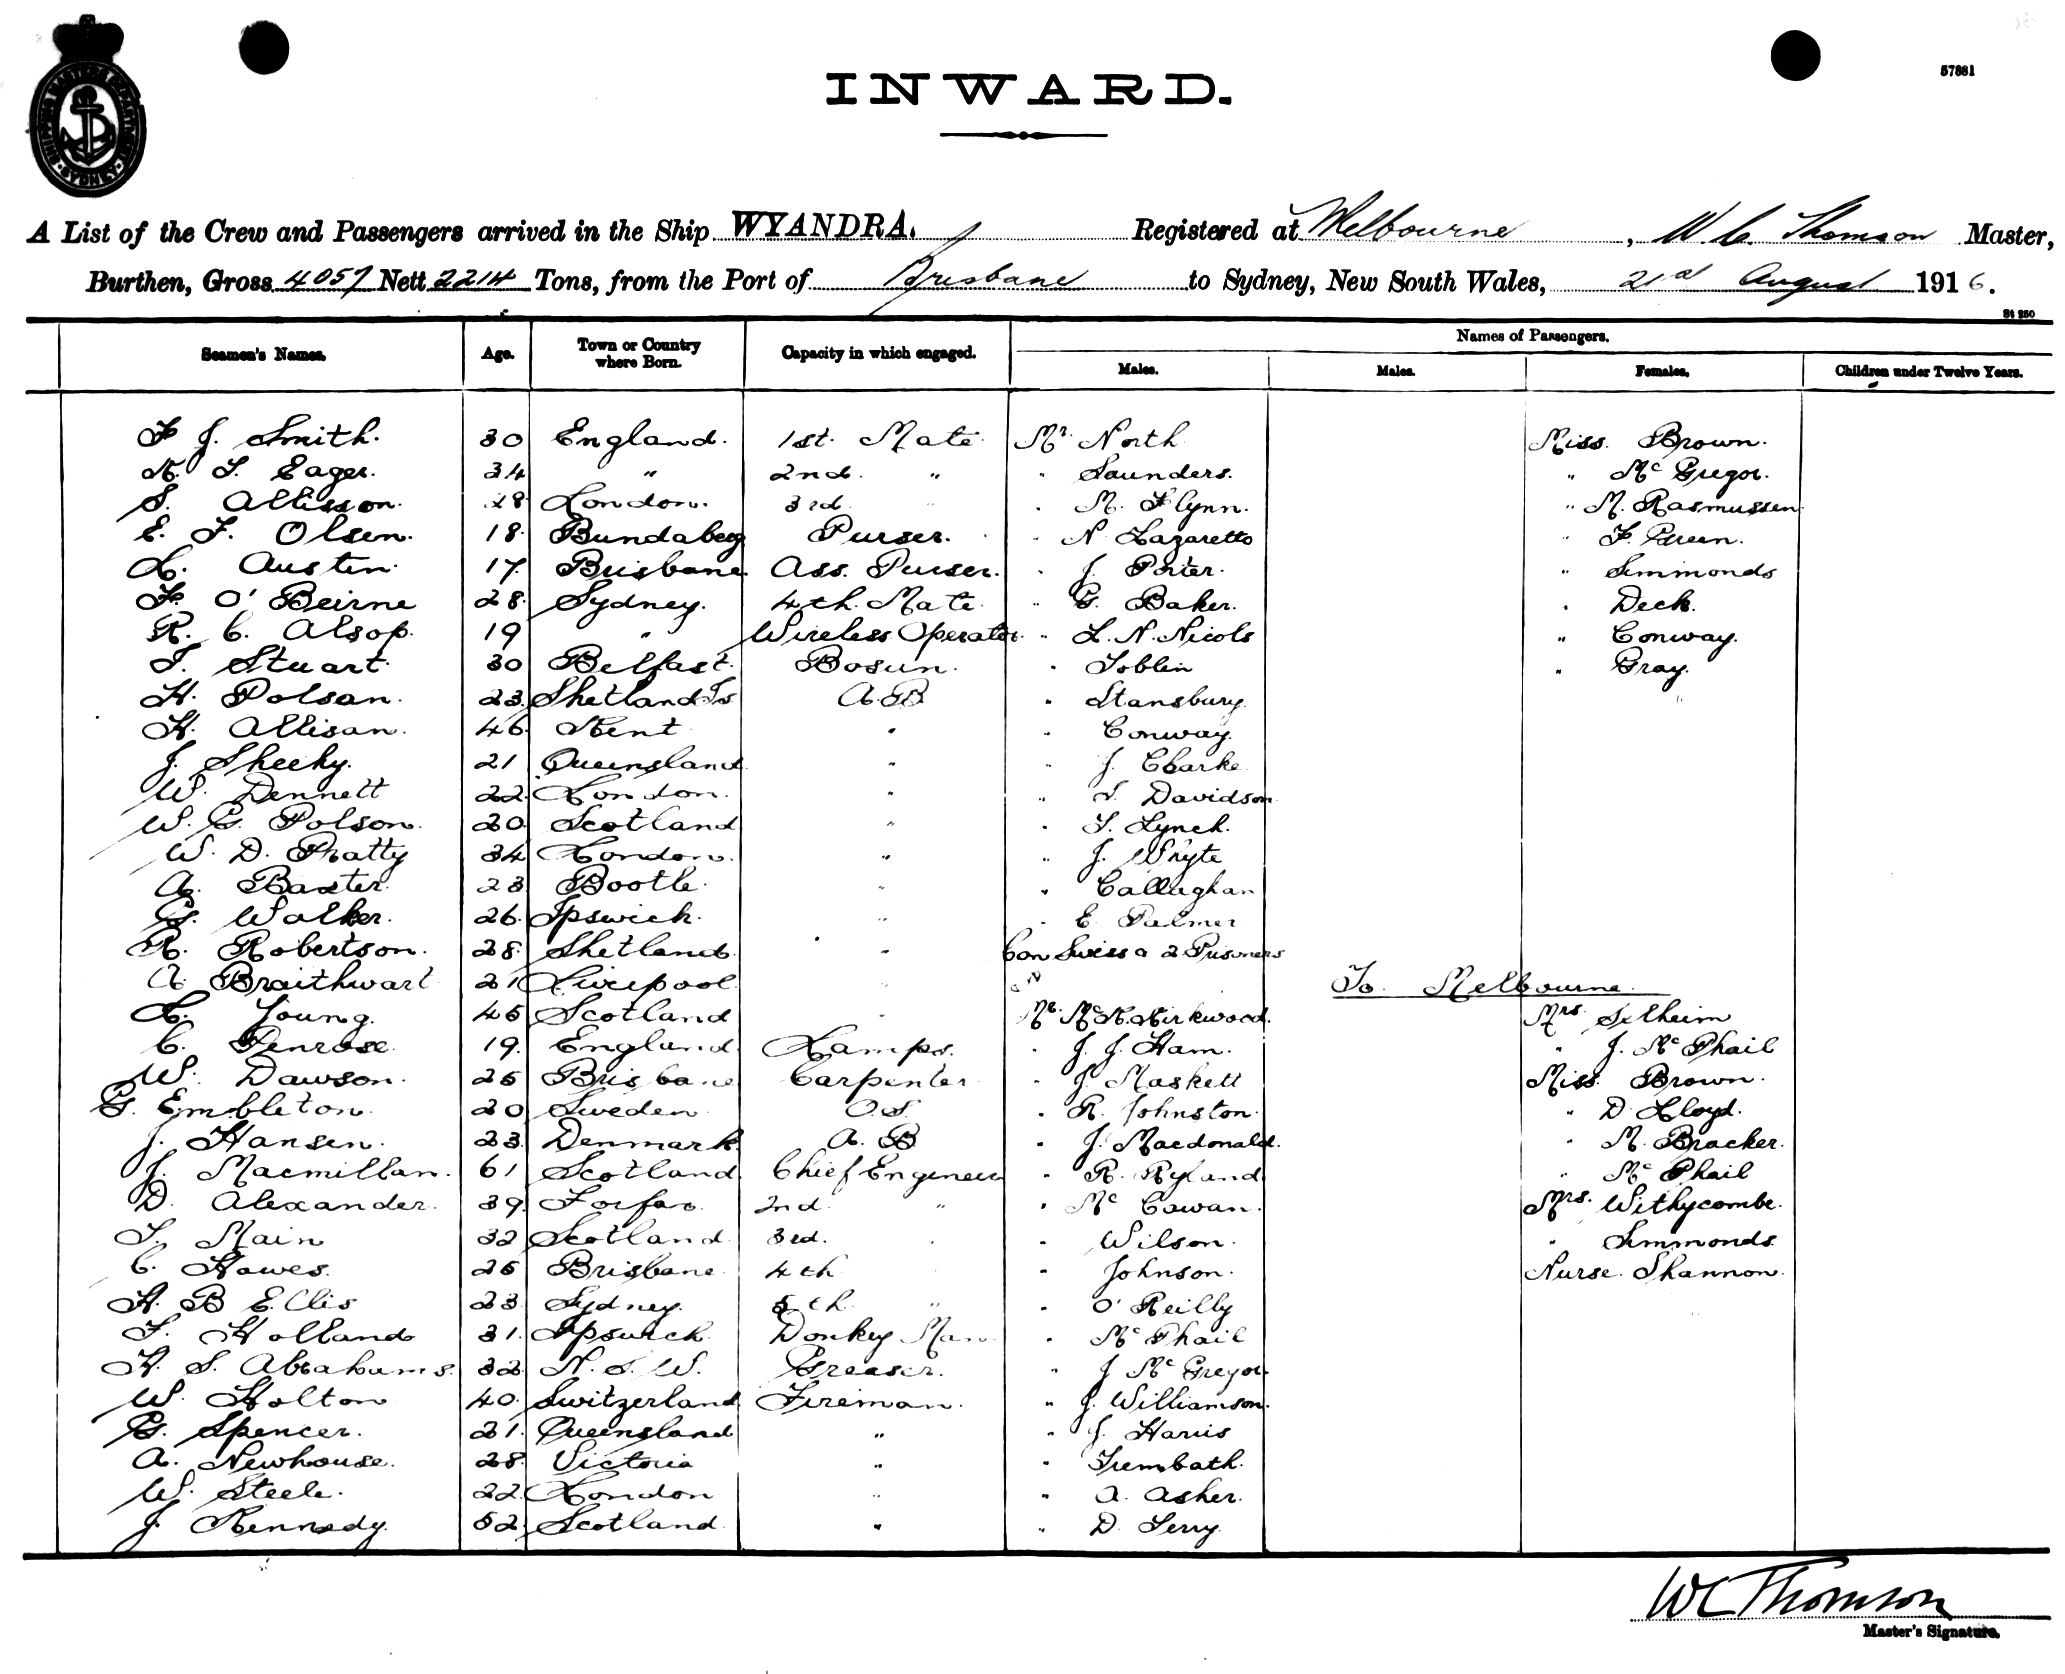 SHIPPING MASTERS DEPARTMENT · SYDNEY ·
57881
INWARD.
A List of the Crew and Passengers arrived in the Ship WYANDRA. Registered at Melbourne, W. C. Thomson Master,
Burthen, Gross 4057 Nett 2214 Tons, from the Port of Brisbane to Sydney, New South Wales, 21st August 1916.
St 250
Seamen's Names. Age. Town or Country where Born. Capacity in which engaged. Names of Passengers.
Males. Males. Females. Children under Twelve Years.
F J. Smith. 30 England. 1st. Mate Mr. North Miss. Brown.
T. Eager. 34 " 2nd. " " Saunders. " Mc Gregor.
S. Allisson. 28 London. 3rd " M. Flynn. " M. Rasmussen
E. F. Olsen. 18. Bundaberg Purser. " N Lazaretto " F. Green.
L. Austin. 17. Brisbane Ass. Purser. " J. Porter. " Simmonds
F. O'Beirne 28. Sydney. 4th. Mate. " G. Baker. " Deck.
R. C. Alsop. 19 " Wireless Operator. " L. N. Nicols " Conway.
T. Stuart. 30 Belfast. Bosun. " Toblin " Gray.
H. Polsan. 23. Shetland Is A.B " Stansbury.
H. Allisan. 46 Kent " " Conway.
J. Sheehy. 21 Queensland " " J. Clarke
W. Dennett 22. London. " " S. Davidson
W. G. Polson. 20. Scotland " " T. Lynch.
W. D. Pratty 34 London. " " J. Whyte
A. Baxter. 23 Bootle. " " Callaghan
G. Walker. 26. Ipswich. " " E Palmer
R. Robertson. 28. Shetland. " Con Swiss a 2 Prisoners
A Braithwart 21 Liverpool " To Melbourne.
L. Young. 45 Scotland " Mr. Mc K. Kirkwood. Mrs. Selheim
C. Penrose. 19. England. Lamps. " J. J. Ham. " J. Mc Phail
W. Dawson. 25 Brisbane Carpenter " J. Maskell Miss. Brown.
G. Embleton. 20 Sweden O.S. " R. Johnston. " D Lloyd.
J. Hansen. 23. Denmark. A. B " J. Macdonald. " M. Bracker.
J. Macmillan. 61 Scotland. Chief Engineer " R. Ryland " Mc Phail
D. Alexander. 39. Forfar. 2nd. " " Mc Cowan. Mrs. Withycombe.
T. Main 32 Scotland. 3rd. " " Wilson. " Simmonds.
C. Hawes. 25 Brisbane 4th " Johnson. Nurse. Shannon.
H. B Ellis 23. Sydney. 5th " " O'Reilly
T. Holland 31. Ipswich. Donkey Man " Mc Phail
H. S. Abrahams. 32. N. S. W. Greaser. " J Mc Gregor
W. Holton 40. Switzerland Fireman. " J. Williamson.
G. Spencer. 21. Queensland " " J. Harris
A. Newhouse. 28. Victoria " " Trembath.
W. Steele. 22. London " " A. Asher.
J. Kennedy. 52. Scotland. " " D. Terry.
WC Thomson
Master's Signature.